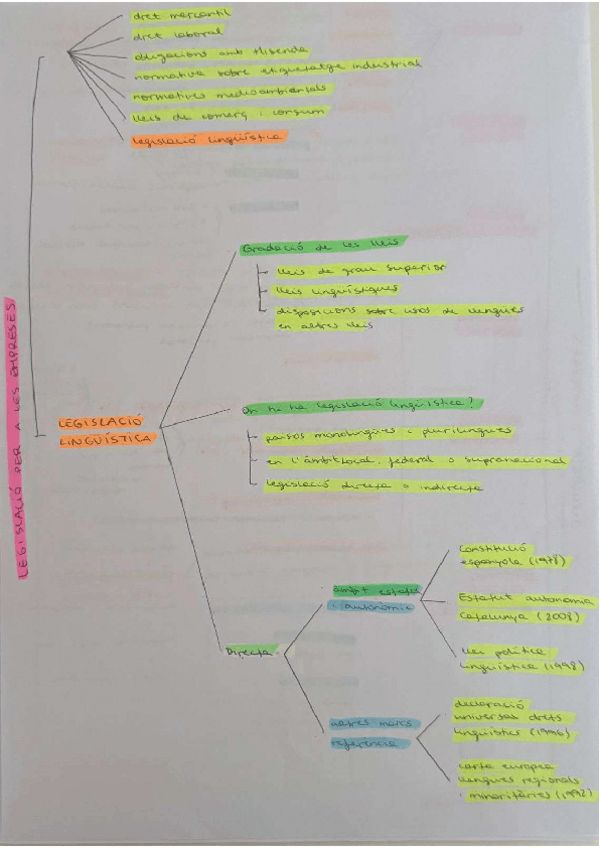 dret mercantil
dret laboral
obligacions amb Hisenda
normativa sobre etiquetatge industrial
normatives mediambientals
lleis de comerç i consum
legislació lingüística
LEGISLACIÓ PER A LES EMPRESES
LEGISLACIÓ
LINGÜÍSTICA
Gradació de les lleis
lleis de grau superior
lleis lingüístiques
disposicions sobre usos de llengües
en altres lleis
On hi ha legislació lingüística?
països monolingües i plurilingües
en l'àmbit local, federal o supranacional
legislació directa o indirecta
Directa
àmbit estatal
i autonòmic
Constitució
espanyola (1978)
Estatut autonomia
Catalunya (2008)
llei política
lingüística (1998)
altres marcs
referència
declaració
universal drets
lingüístics (1996)
carta europea
llengües regionals
i minoritàries (1992)